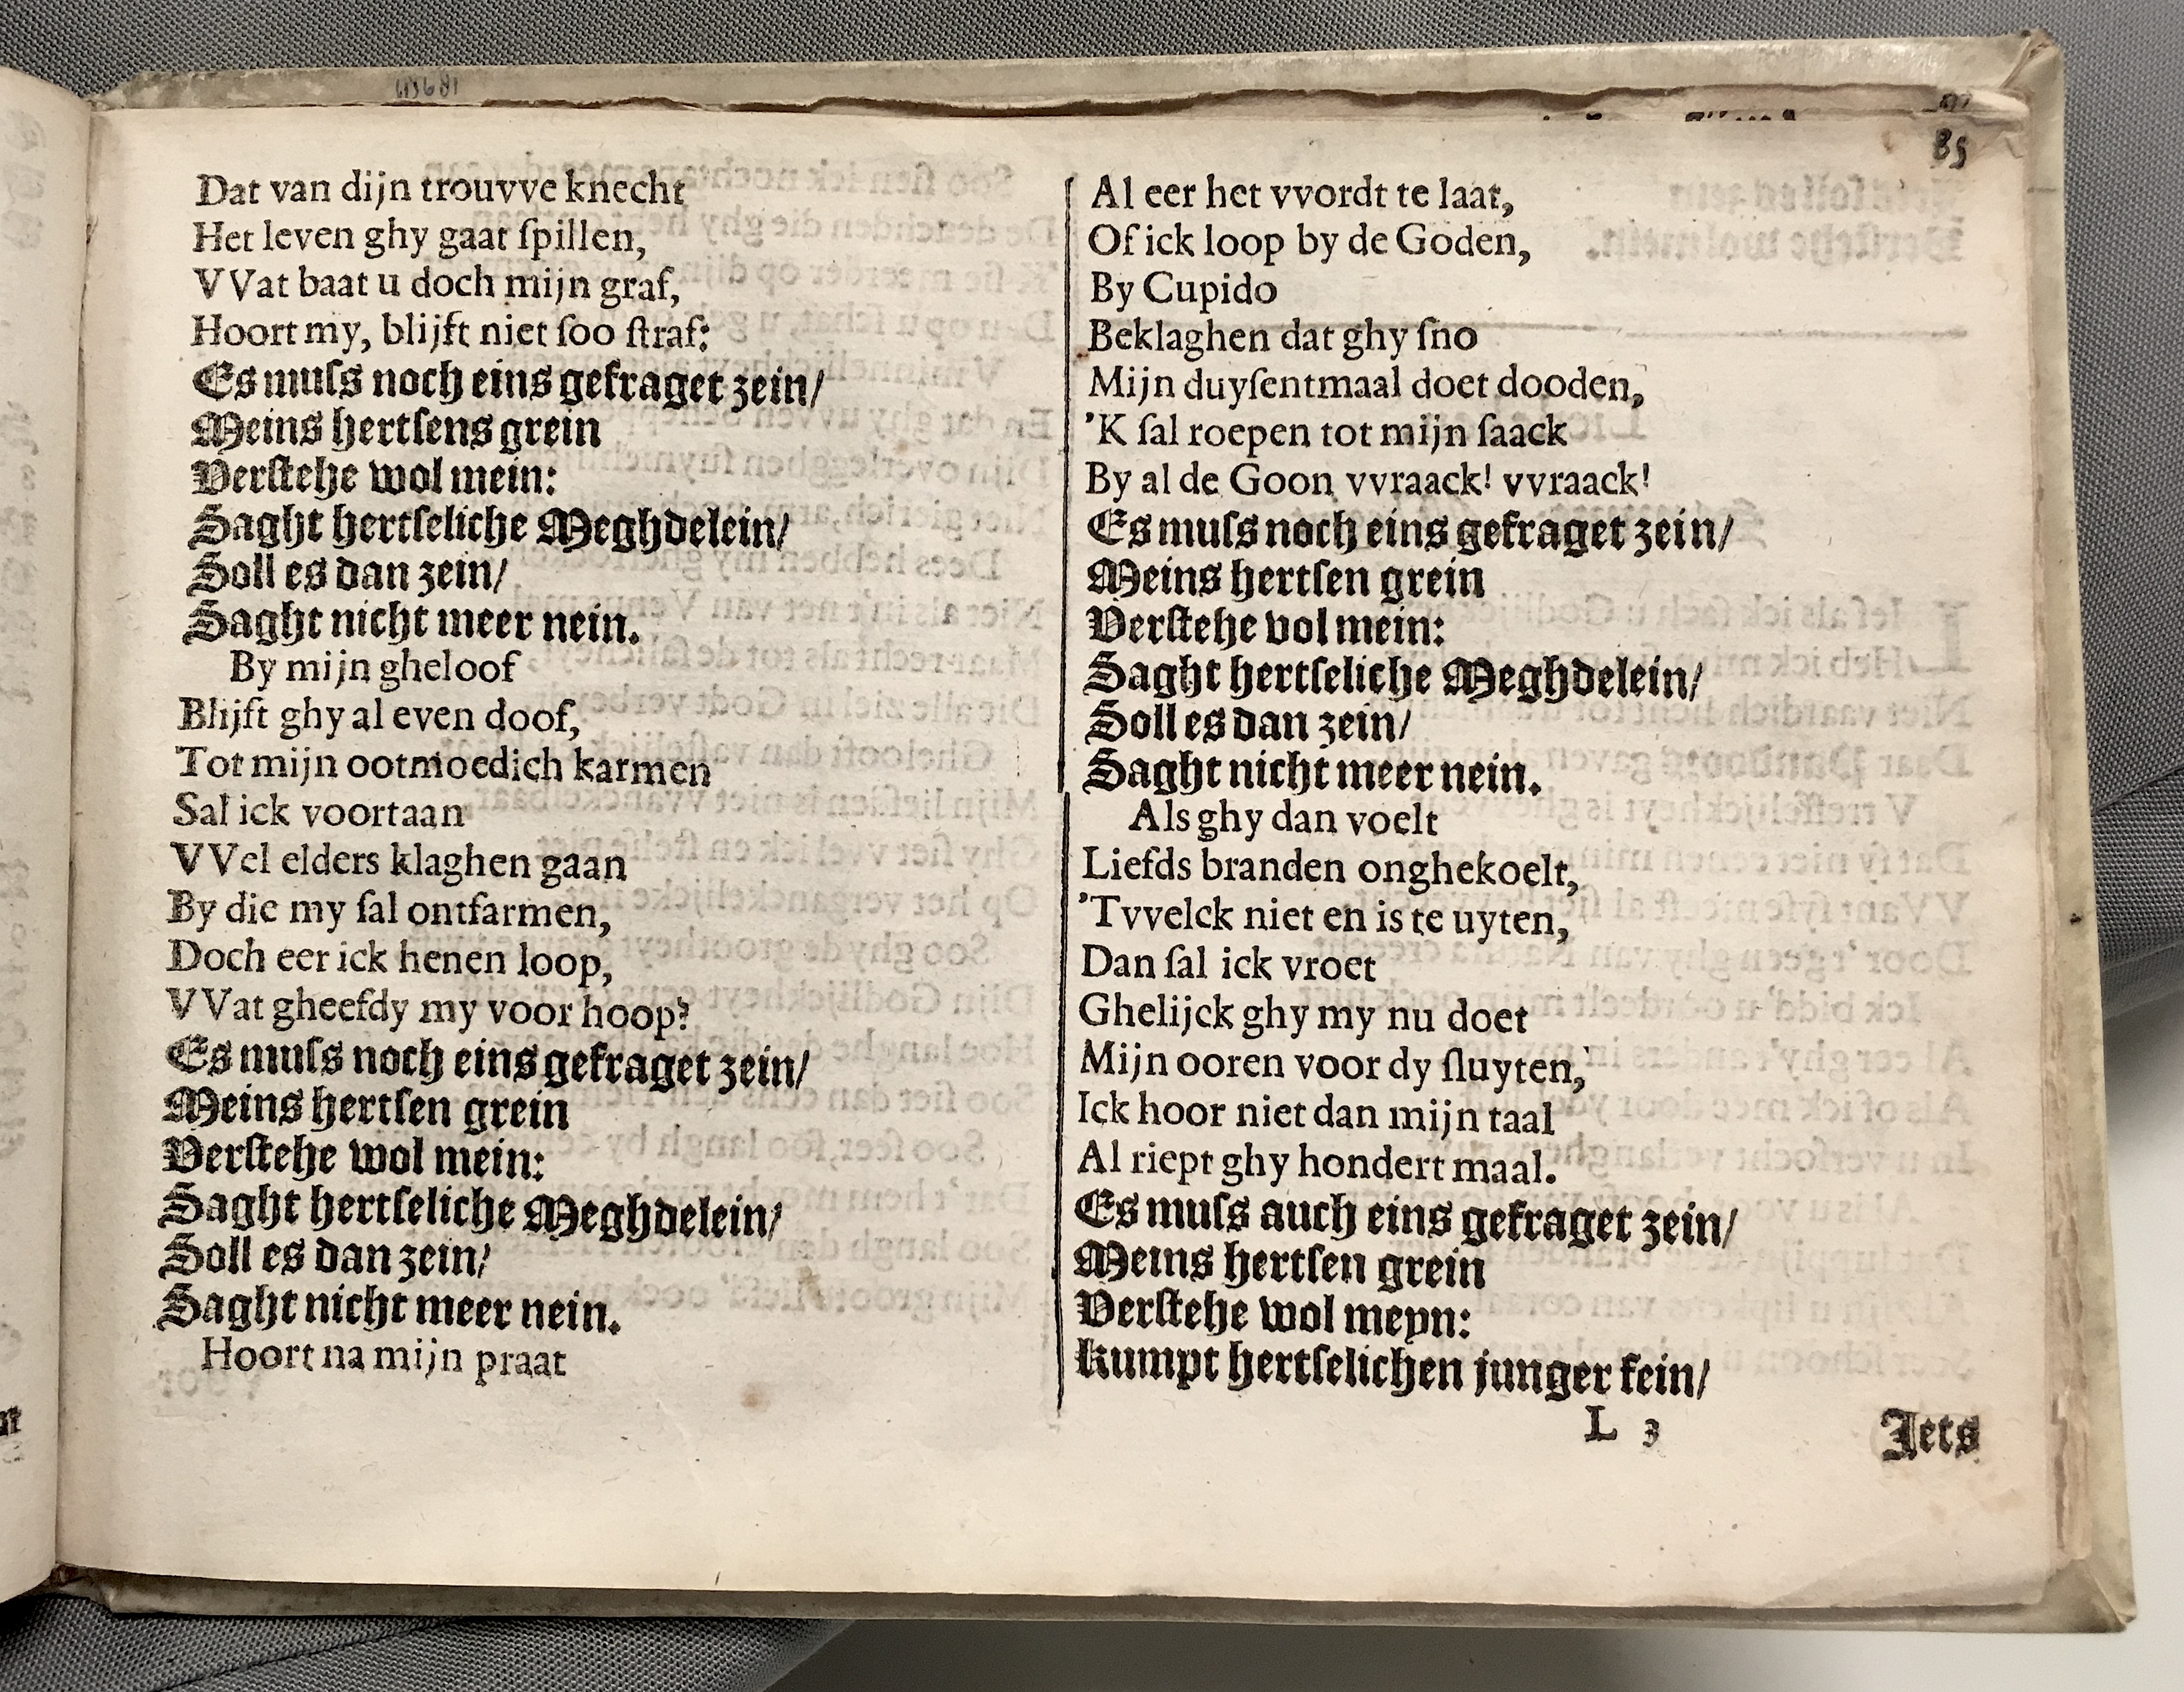 85
Dat van dijn trouvve knecht
Het leven ghy gaat ſpillen,
VVat baat u doch mijn graf,
Hoort my, blijft niet ſoo ſtraf:
Es muſs noch eins gefraget zein/
Meins hertſens grein
Verſtehe wol mein:
Saght hertſeliche Meghdelein/
Soll es dan zein/
Saght nicht meer nein.
By mijn gheloof
Blijft ghy al even doof,
Tot mijn ootmoedich karmen
Sal ick voortaan
VVel elders klaghen gaan
By die my ſal ontfarmen,
Doch eer ick henen loop,
VVat gheefdy my voor hoop?
Es muſs noch eins gefraget zein/
Meins hertſen grein
Verſtehe wol mein:
Saght hertſeliche Meghdelein/
Soll es dan zein/
Saght nicht meer nein.
Hoort na mijn praat
Al eer het vvordt te laat,
Of ick loop by de Goden,
By Cupido
Beklaghen dat ghy ſno
Mijn duyſentmaal doet dooden,
'K ſal roepen tot mijn ſaack
By al de Goon vvraack! vvraack!
Es muſs noch eins gefraget zein/
Meins hertſen grein
Verſtehe vol mein:
Saght hertſeliche Meghdelein/
Soll es dan zein/
Saght nicht meer nein.
Als ghy dan voelt
Liefds branden onghekoelt,
'Tvvelck niet en is te uyten,
Dan ſal ick vroet
Ghelijck ghy my nu doet
Mijn ooren voor dy ſluyten,
Ick hoor niet dan mijn taal
Al riept ghy hondert maal.
Es muſs auch eins gefraget zein/
Meins hertſen grein
Verſtehe wol meyn:
Kumpt hertſelichen junger fein/
L 3
Iets